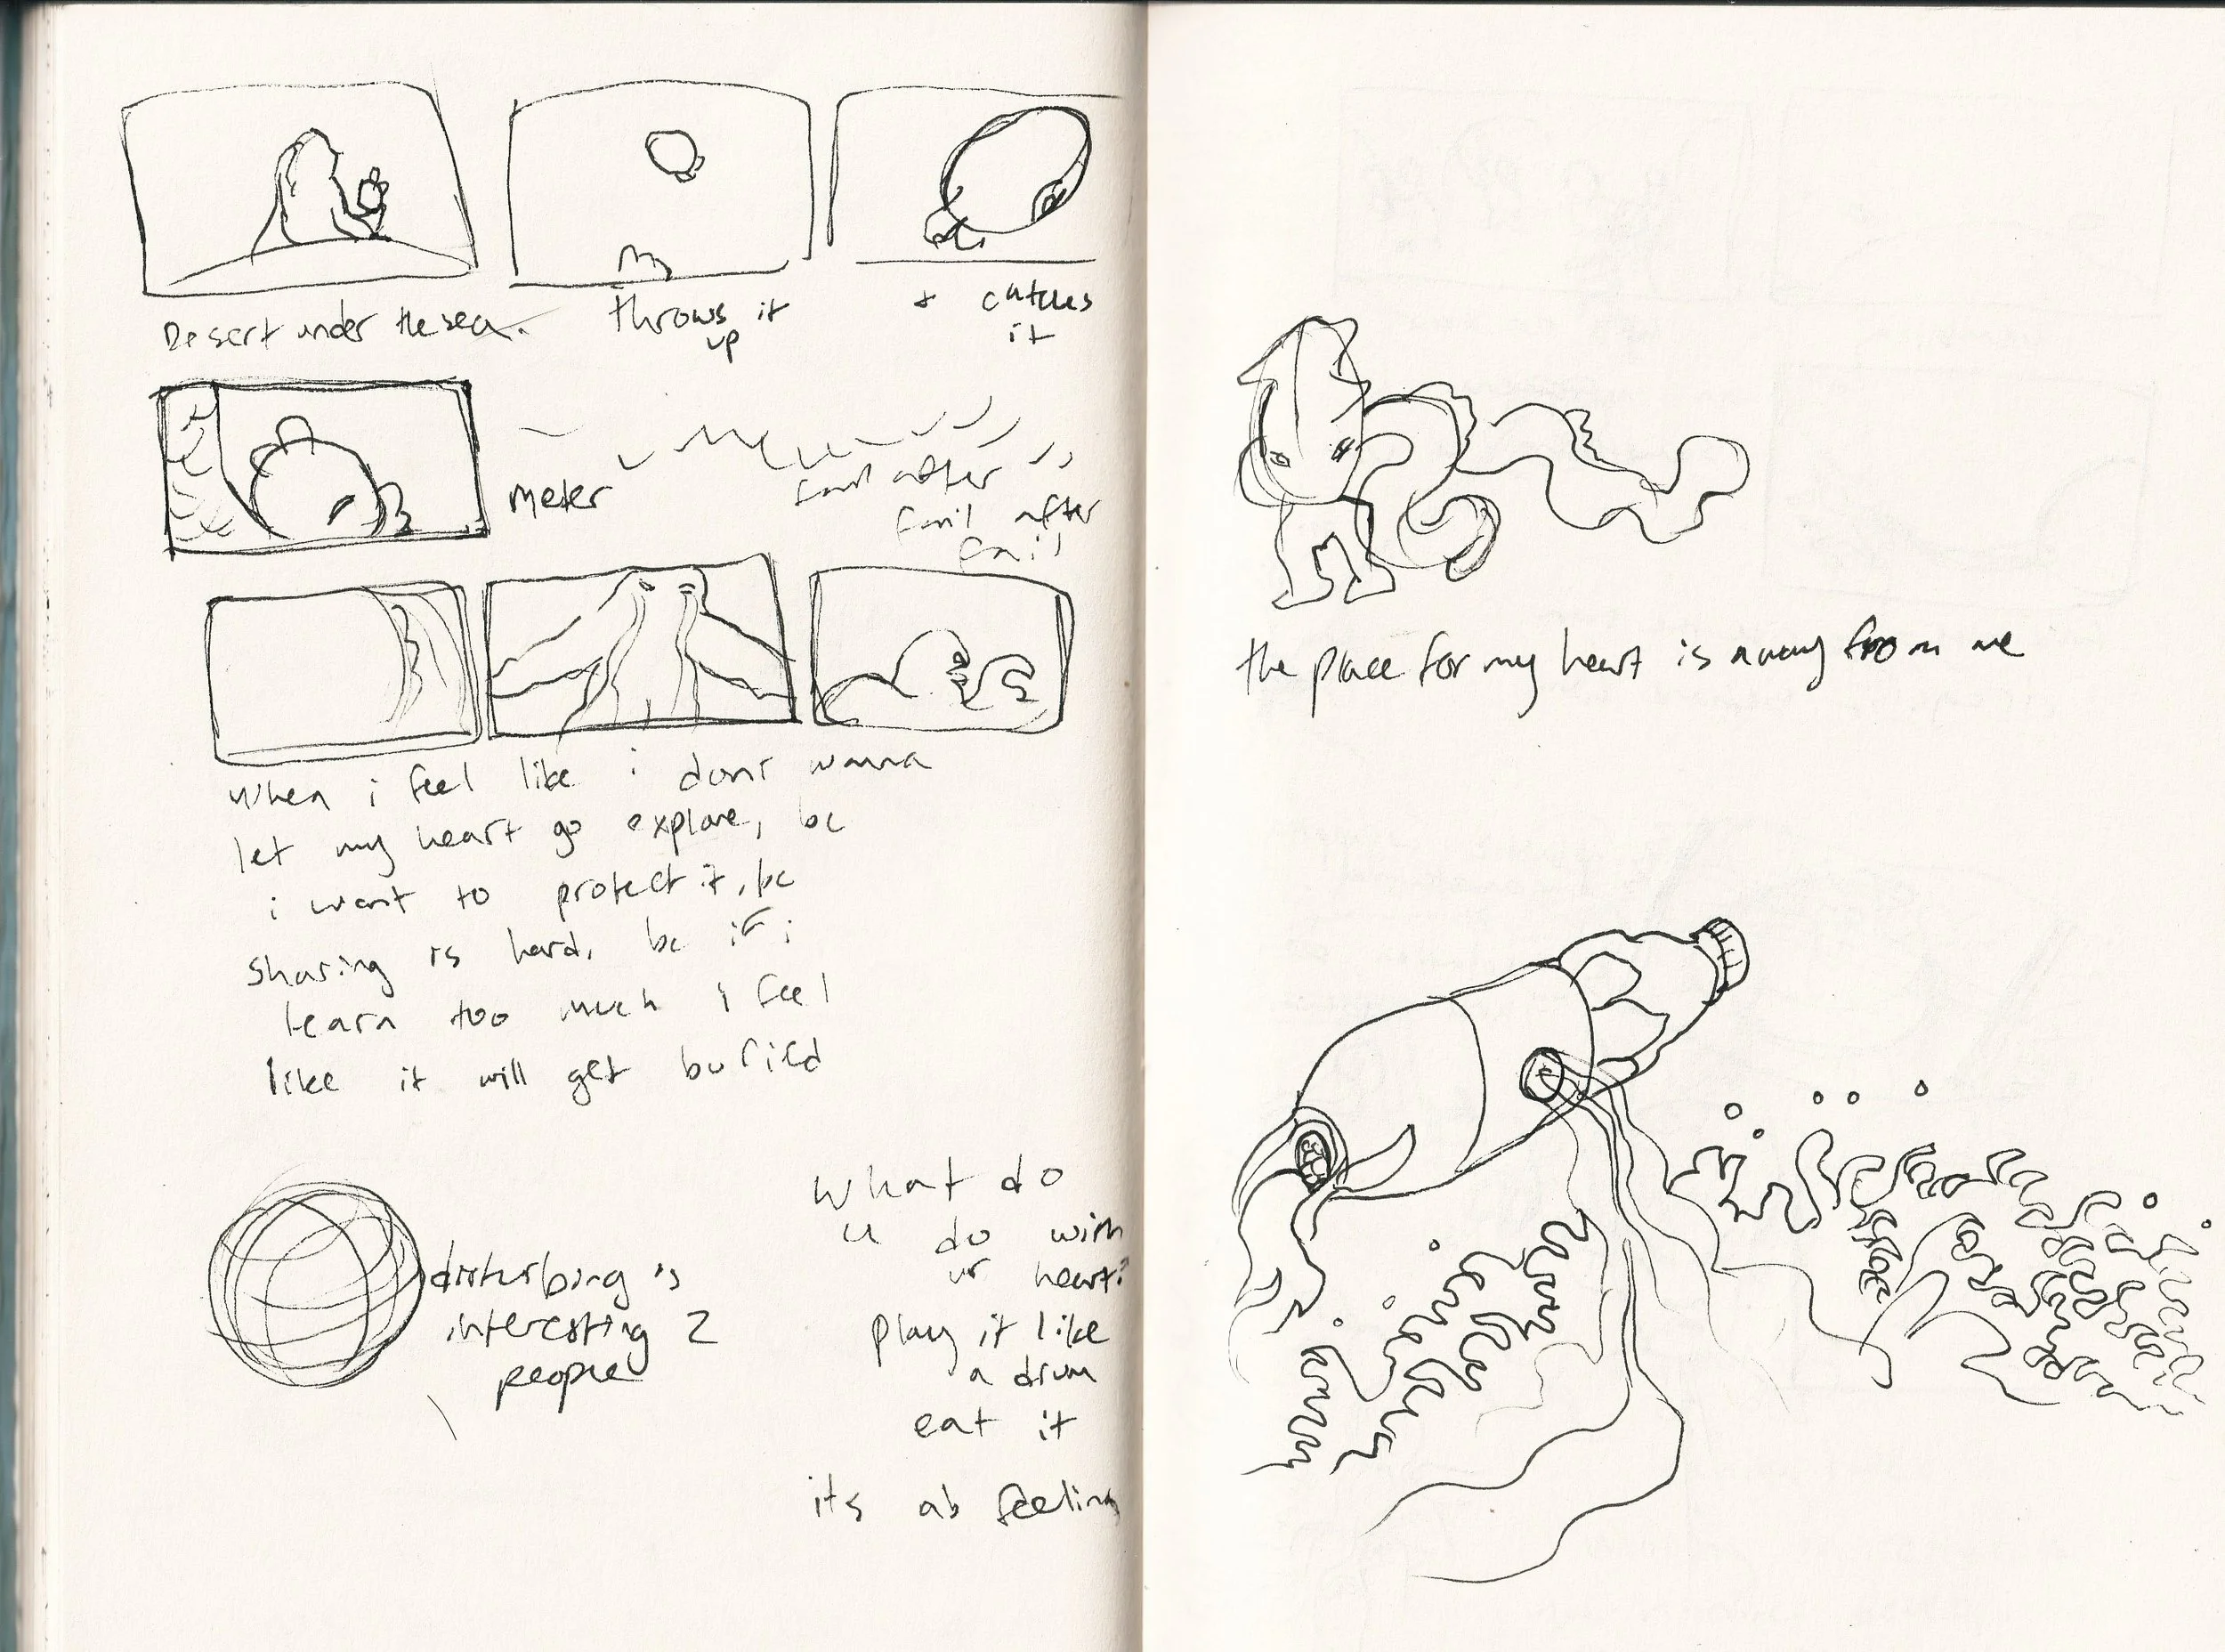 Desert under the sea.
throws it
up
+ catches
it
meter
fail after
fail after
fail
when i feel like i dont wanna
let my heart go explore, bc
i want to protect it, bc
sharing is hard, bc if i
learn too much i feel
like it will get buried
disturbing is
interesting 2
people
what do
u do with
ur heart?
play it like
a drum
eat it
its ab feeling
the place for my heart is away from me